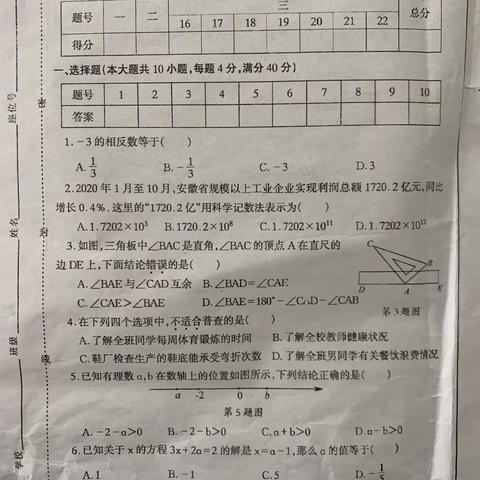 题号 一 二 三 总分
16 17 18 19 20 21 22
得分
一、选择题(本大题共10小题,每题4分,满分40分)
题号 1 2 3 4 5 6 7 8 9 10
答案
1. -3的相反数等于( )
A. 1/3 B. -1/3 C. -3 D. 3
2. 2020年1月至10月,安徽省规模以上工业企业实现利润总额1720.2亿元,同比
增长0.4%.这里的“1720.2亿”用科学记数法表示为( )
A. 1.7202×10³ B. 1720.2×10⁸ C. 1.7202×10¹¹ D. 1.7202×10¹²
3. 如图,三角板中∠BAC是直角,∠BAC的顶点A在直尺的
边DE上,下面结论错误的是( )
A. ∠BAE与∠CAD互余 B. ∠BAD=∠CAE
C. ∠CAE>∠BAE D. ∠BAE=180°-∠CAD-∠CAB
C
B
D A E
第3题图
4. 在下列四个选项中,不适合普查的是( )
A. 了解全班同学每周体育锻炼的时间 B. 了解全校教师健康状况
C. 鞋厂检查生产的鞋底能承受弯折次数 D. 了解全班男同学有关餐饮浪费情况
5. 已知有理数a,b在数轴上的位置如图所示,下列结论正确的是( )
a -2 0 b
第5题图
A. -2-a>0 B. -2-b>0 C. a+b>0 D. a-b>0
6. 已知关于x的方程3x+2a=2的解是x=a-1,那么a的值等于( )
A. 1 B. -1 C. 5 D. -1/5
座位号
姓名
班级
学校
密
封
线